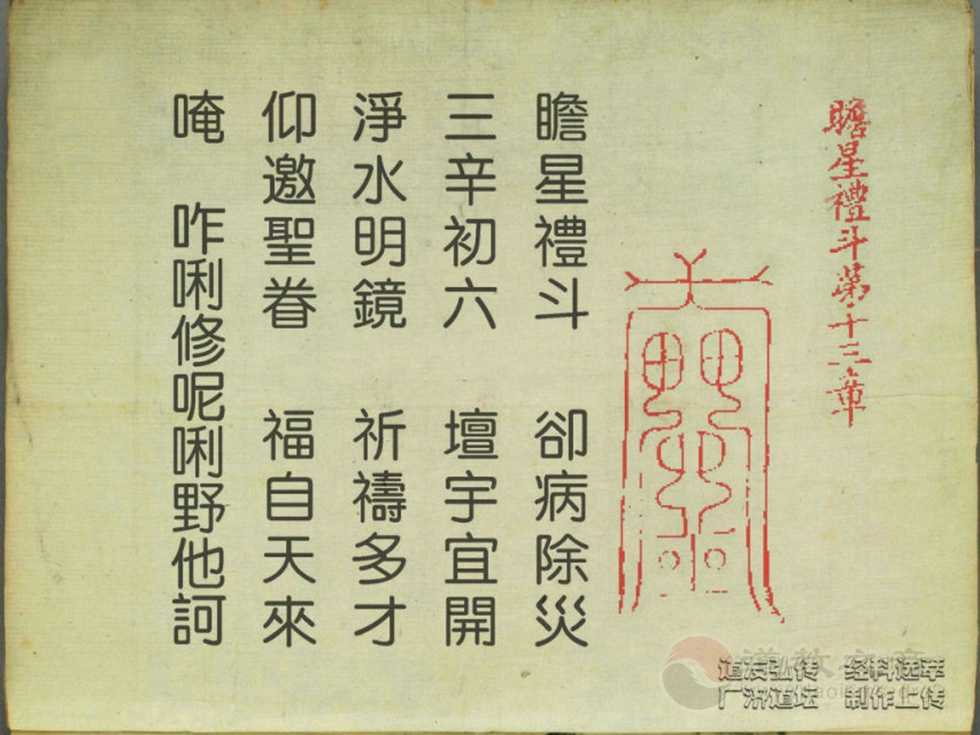 瞻星禮斗第十三章
瞻星禮斗 卻病除災
三辛初六 壇宇宜開
淨水明鏡 祈禱多才
仰邀聖眷 福自天來
唵 咋唎修呢唎野他訶
道友弘传 经科选萃
广济道坛 制作上传